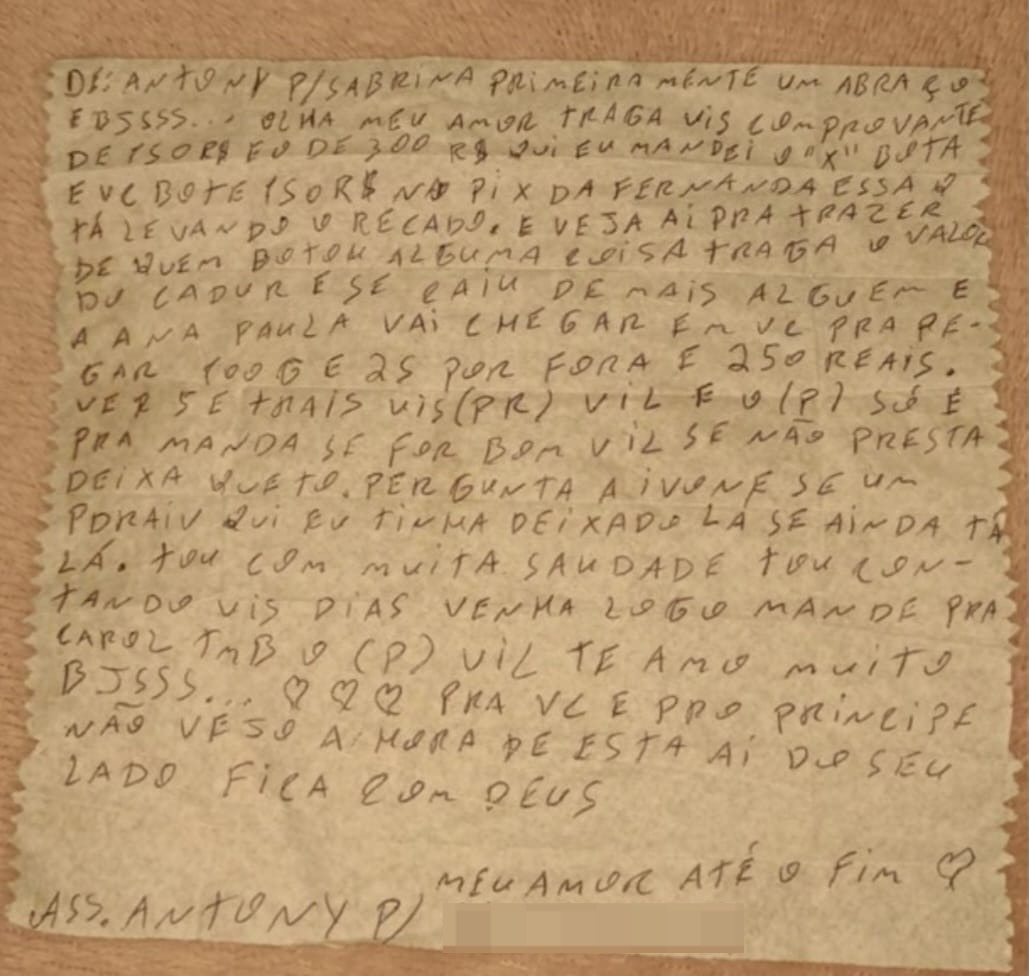 DE: ANTONY P/SABRINA PRIMEIRA MENTE UM ABRAÇO
E BJSSSS... OLHA MEU AMOR TRAGA UIS COMPROVANTE
DE 150R$ E O DE 300 R$ QUI EU MANDEI O "X" BOTA
E VC BOTE 150R$ NO PIX DA FERNANDA ESSA Q
TÁ LEVANDO O RECADO. E VEJA AI PRA TRAZER
DE QUEM BOTOU ALGUMA COISA TRAGA O VALOR
DU CADUR E SE CAIU DE MAIS ALGUEM E
A ANA PAULA VAI CHEGAR EM VC PRA PE-
GAR 100G E 25 POR FORA E 250 REAIS.
VER SE TRAIS UIS (PR) VIL E O (P) SÓ É
PRA MANDA SE FOR BOM VIL SE NÃO PRESTA
DEIXA QUETO. PERGUNTA A IVONE SE UM
PDRAIU QUI EU TINHA DEIXADO LA SE AINDA TÁ
LÁ. TOU COM MUITA SAUDADE TOU CON-
TANDO UIS DIAS VENHA LOGO MANDE PRA
CAROL TMB O (P) VIL TE AMO MUITO
BJSSS... ♡ ♡ ♡ PRA VC E PRO PRINCIPE
NÃO VEJO A HORA DE ESTA AI DO SEU
LADO FICA COM DEUS
MEU AMOR ATÉ O FIM ♡
ASS. ANTONY P/